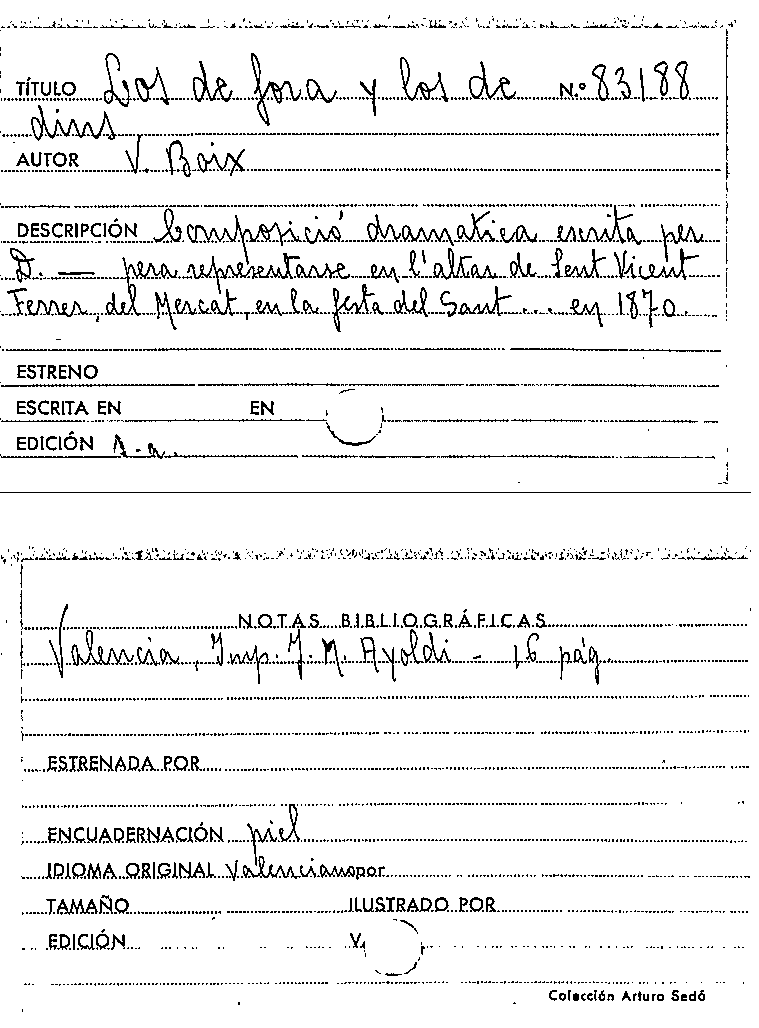 TÍTULO Los de fora y los de N.º 83188
dins
AUTOR V. Boix
DESCRIPCIÓN Composició dramatica escrita per
D. — pera representarse en l'altar de Sent Vicent
Ferrer, del Mercat, en la festa del Sant... en 1870.
ESTRENO
ESCRITA EN EN
EDICIÓN
NOTAS BIBLIOGRÁFICAS
Valencia, Imp. J. M. Ayoldi - 16 pág.
ESTRENADA POR
ENCUADERNACIÓN piel
IDIOMA ORIGINAL Valenciano por
TAMAÑO ILUSTRADO POR
EDICIÓN V.
Colección Arturo Sedó